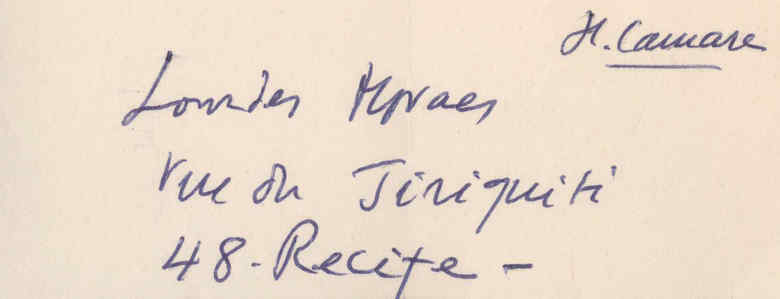 H. Camara
Lourdes Moraes
rue du Jiriquiti
48 - Recife -